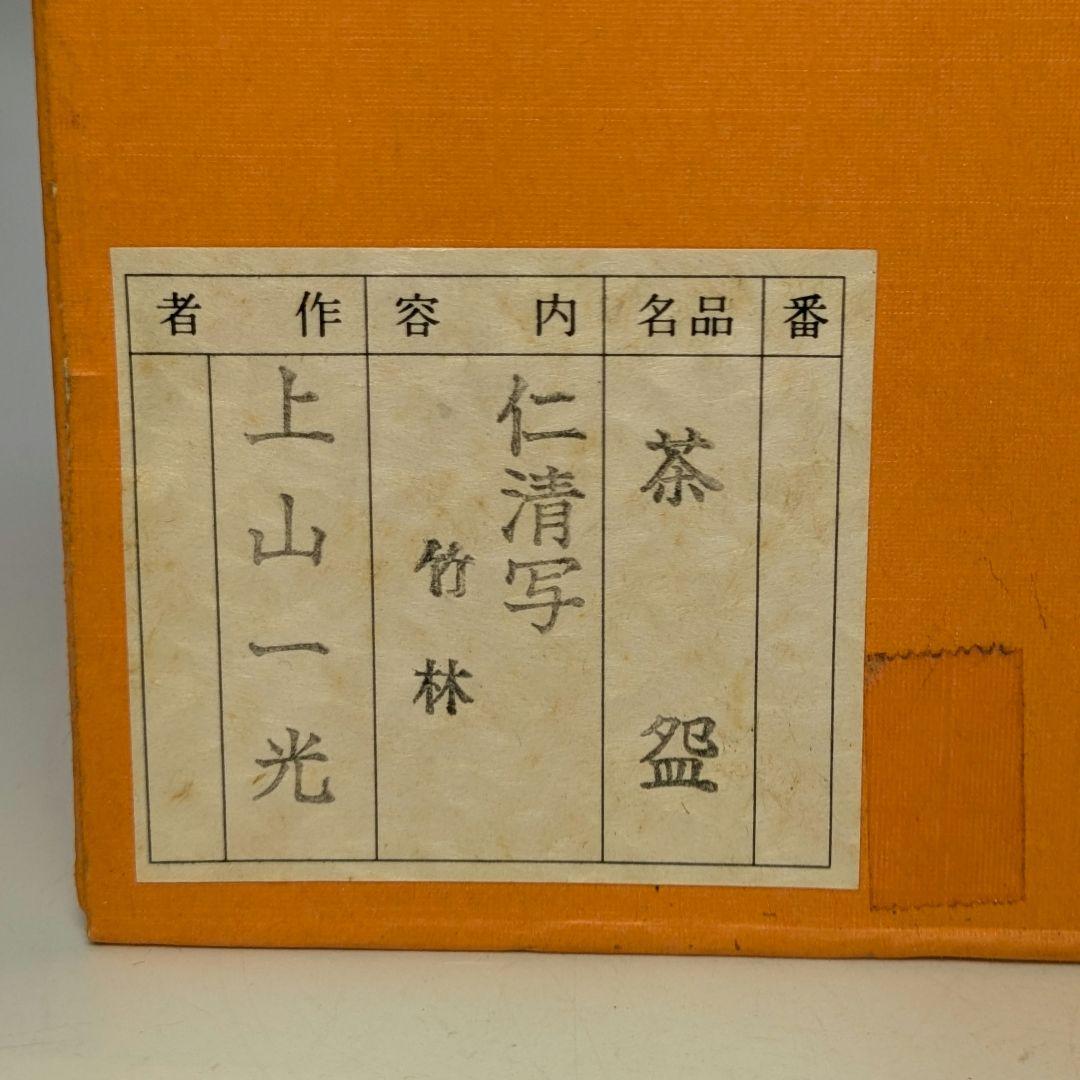 番
品名
茶盌
内容
仁清写
竹林
作者
上山一光